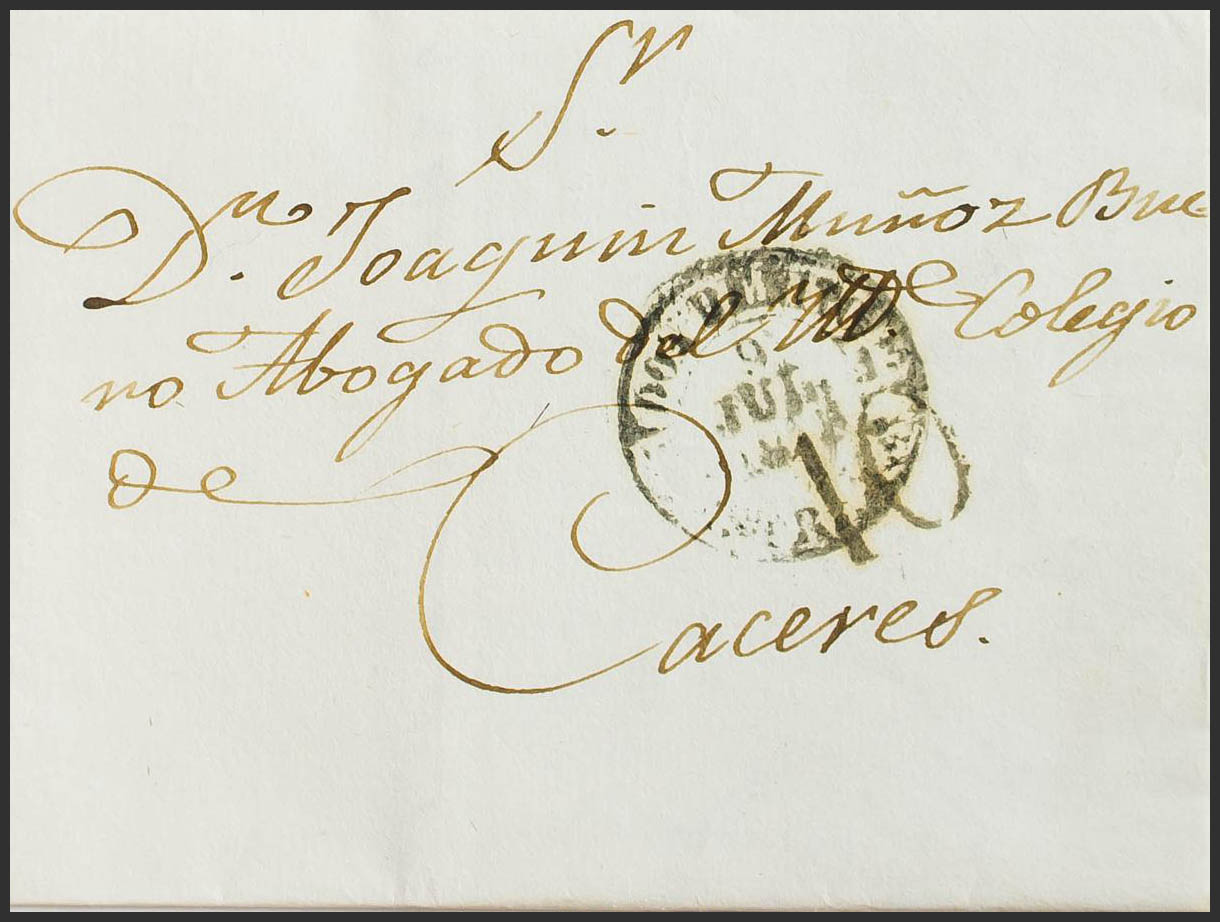 Sr.
Dn. Joaquin Muñoz Bue
no Abogado del Yltt.e Colegio
de
Caceres.
9
JUL